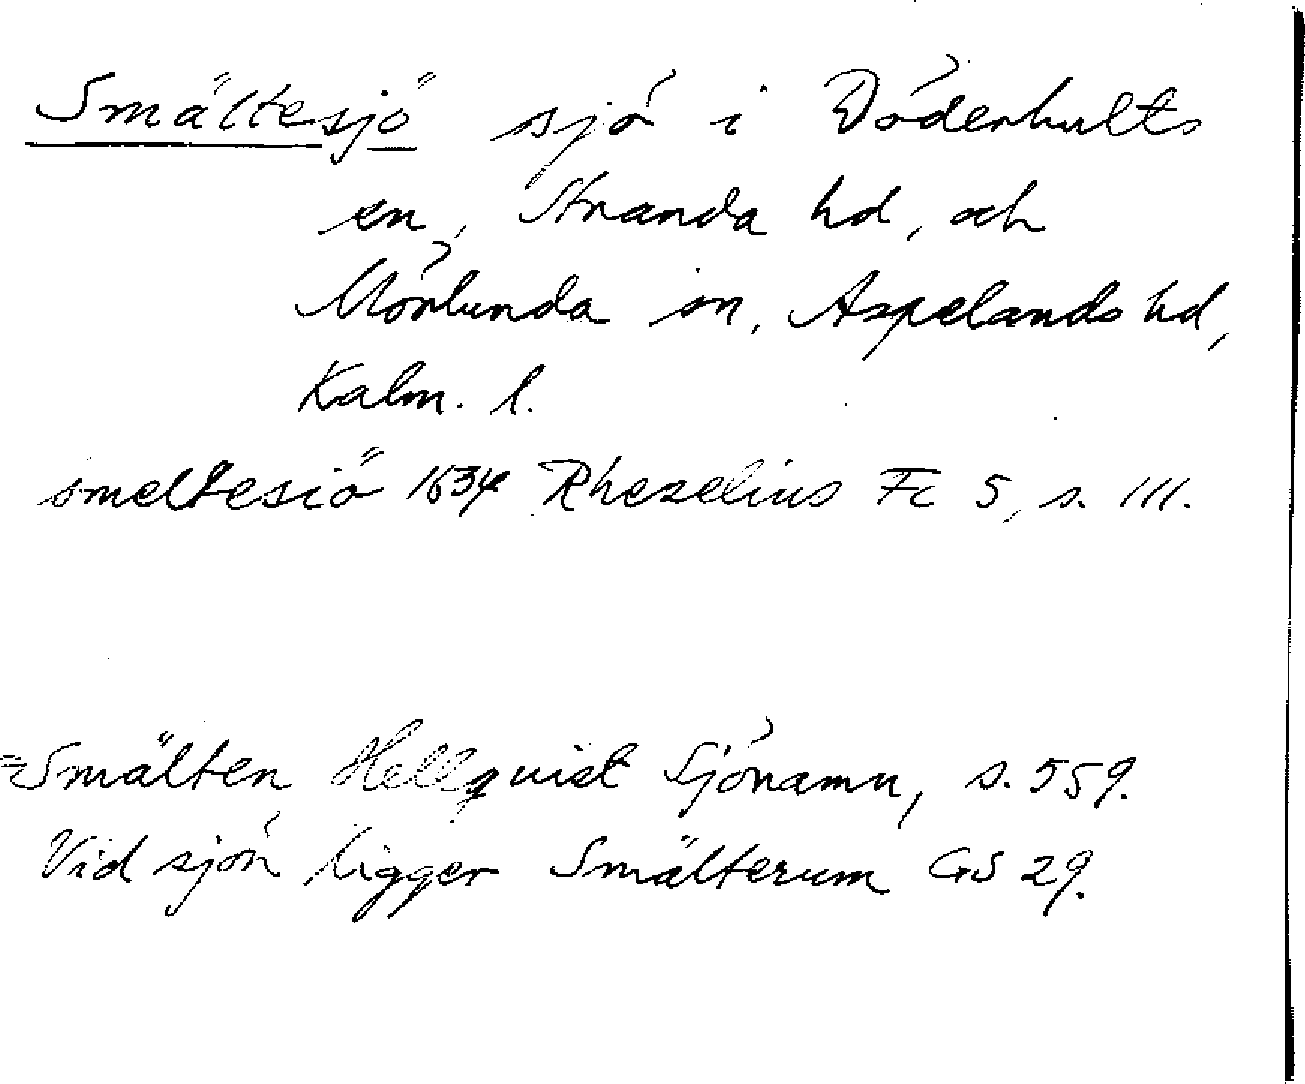 Smältesjö sjö i Döderhults
sn, Stranda hd, och
Mörlunda sn, Aspelands hd,
Kalm. l.
smeltesiö 1634 Rhezelius Fc 5, s. 111.
=Smälten Hellquist Sjönamn, s. 559.
Vid sjön ligger Smälterum GS 29.